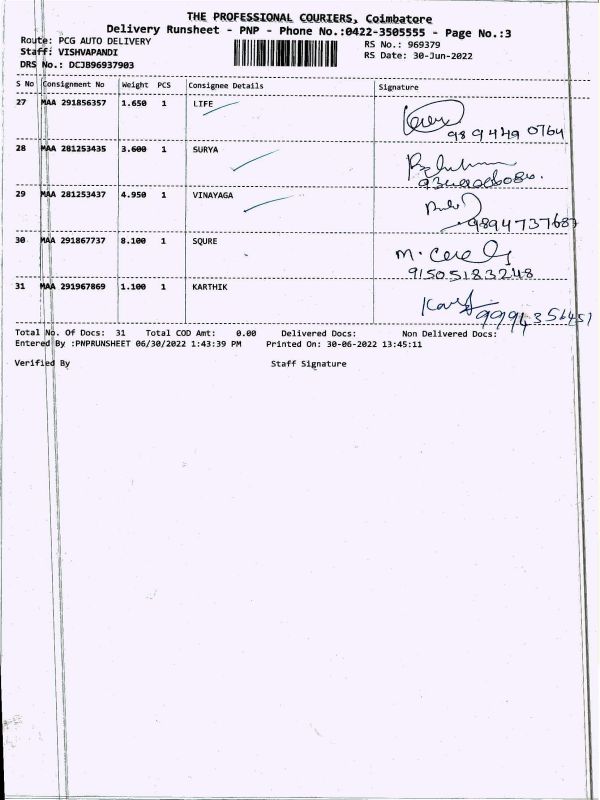 THE PROFESSIONAL COURIERS, Coimbatore
Delivery Runsheet - PNP - Phone No.:0422-3505555 - Page No.:3
Route: PCG AUTO DELIVERY
RS No.: 969379
Staff: VISHVAPANDI
RS Date: 30-Jun-2022
DRS No.: DCJB96937903
S No Consignment No Weight PCS Consignee Details Signature
27 MAA 291856357 1.650 1 LIFE
28 MAA 281253435 3.600 1 SURYA
29 MAA 281253437 4.950 1 VINAYAGA
9894737687
30 MAA 291867737 8.100 1 SQURE
91505183248
31 MAA 291967869 1.100 1 KARTHIK
9994356451
Total No. Of Docs: 31 Total COD Amt: 0.00 Delivered Docs: Non Delivered Docs:
Entered By :PNPRUNSHEET 06/30/2022 1:43:39 PM Printed On: 30-06-2022 13:45:11
Verified By Staff Signature